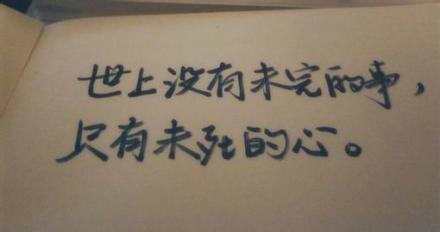 世上没有未完的事，
只有未死的心。